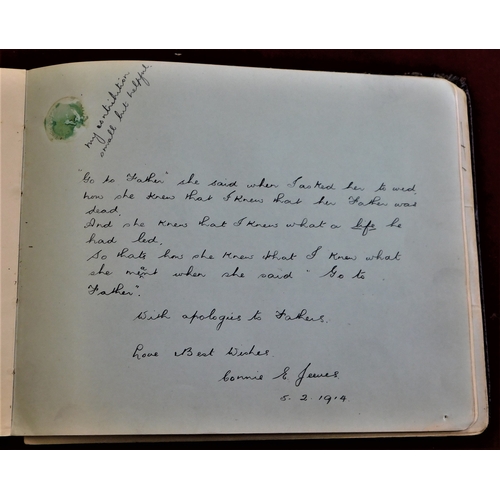 my contribution
small but helpful.
"Go to Father" she said when I asked her to wed
now she knew that I knew that her Father was
dead.
And she knew that I knew what a life he
had led.
So thats how she knew that I knew what
she meant when she said "Go to
Father".
With apologies to Fathers.
Love Best Wishes.
Connie E. Jewes.
5. 2. 1914